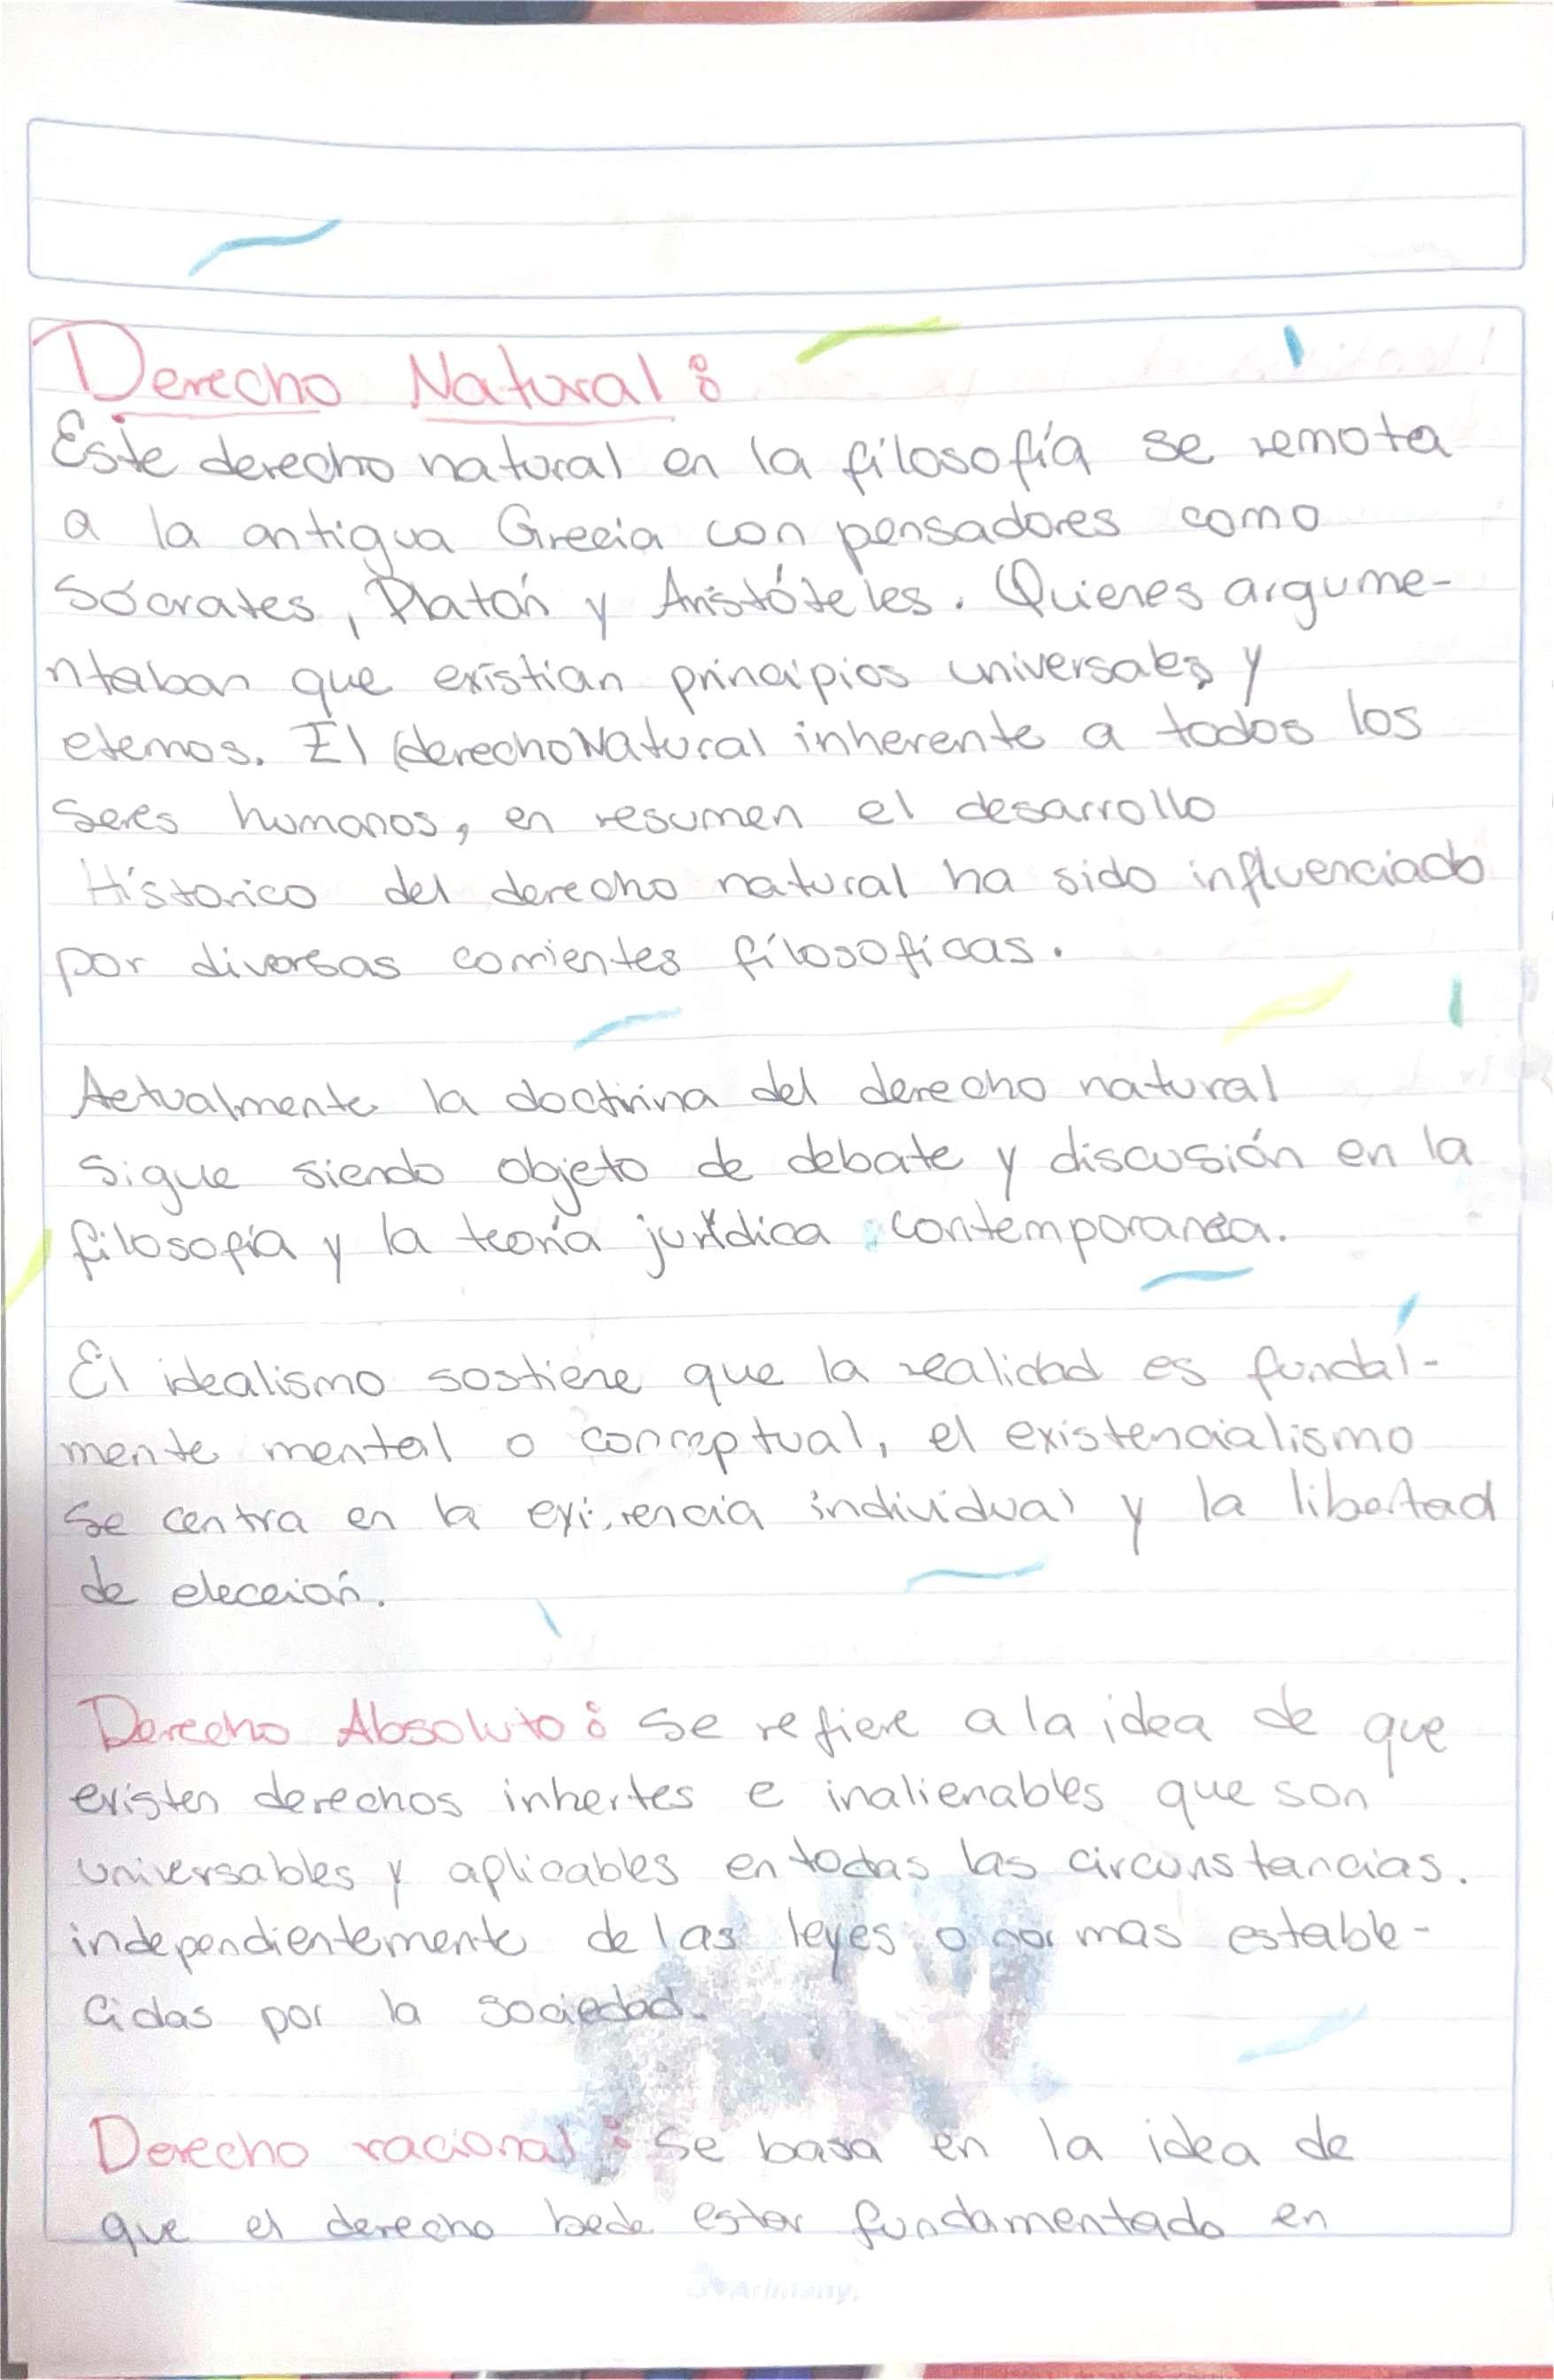 Derecho Natural :
Este derecho natural en la filosofía se remota
a la antigua Grecia con pensadores como
Sócrates, Platón y Aristóteles. Quienes argume-
ntaban que existian principios universales y
eternos. El derecho Natural inherente a todos los
seres humanos, en resumen el desarrollo
Historico del derecho natural ha sido influenciado
por diversas corrientes filosoficas.
Actualmente la doctrina del derecho natural
sigue siendo objeto de debate y discusión en la
filosofía y la teoría jurídica contemporanea.
El idealismo sostiene que la realidad es fundal-
mente mental o conceptual, el existencialismo
se centra en la existencia individual y la libertad
de elección.
Derecho Absoluto : Se refiere a la idea de que
existen derechos inhertes e inalienables que son
universables y aplicables en todas las circunstancias.
independientemente de las leyes o normas estable-
cidas por la sociedad.
Derecho racional : Se basa en la idea de
que el derecho bede estar fundamentado en